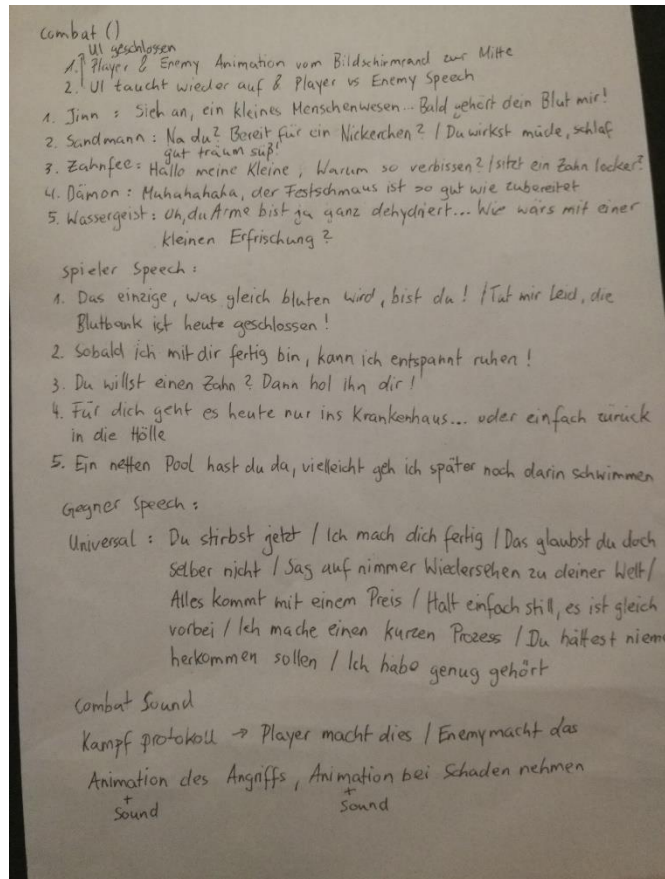 combat ()
UI geschlossen
1. Player & Enemy Animation vom Bildschirmrand zur Mitte
2. UI taucht wieder auf & Player vs Enemy Speech
1. Jinn : Sieh an, ein kleines Menschenwesen... Bald gehört dein Blut mir!
2. Sandmann : Na du? Bereit für ein Nickerchen? / Du wirkst müde, schlaf
gut träum süß!
3. Zahnfee : Hallo meine Kleine, Warum so verbissen? / sitzt ein Zahn locker?
4. Dämon : Muhahahaha, der Festschmaus ist so gut wie zubereitet
5. Wassergeist : Oh, du Arme bist ja ganz dehydriert... Wie wärs mit einer
kleinen Erfrischung?
Spieler Speech :
1. Das einzige, was gleich bluten wird, bist du! / Tut mir Leid, die
Blutbank ist heute geschlossen!
2. Sobald ich mit dir fertig bin, kann ich entspannt ruhen!
3. Du willst einen Zahn? Dann hol ihn dir!
4. Für dich geht es heute nur ins Krankenhaus... oder einfach zurück
in die Hölle
5. Ein netten Pool hast du da, vielleicht geh ich später noch darin schwimmen
Gegner Speech :
Universal : Du stirbst jetzt / Ich mach dich fertig / Das glaubst du doch
selber nicht / Sag auf nimmer Wiedersehen zu deiner Welt /
Alles kommt mit einem Preis / Halt einfach still, es ist gleich
vorbei / Ich mache einen kurzen Prozess / Du hättest niem
herkommen sollen / Ich habe genug gehört
Combat Sound
Kampf protokoll → Player macht dies / Enemy macht das
Animation des Angriffs, Animation bei Schaden nehmen
+ +
Sound Sound